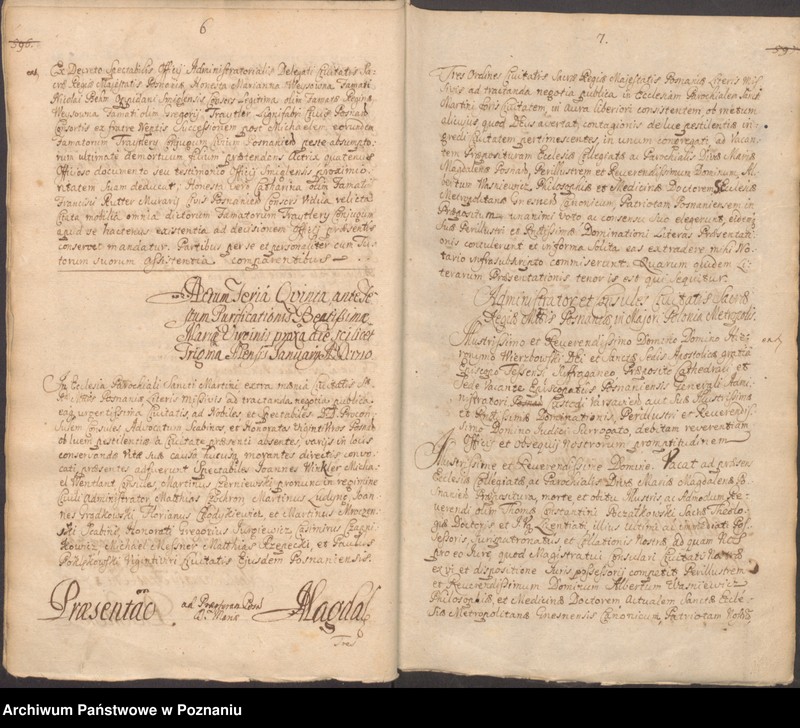 6
596.
Ex Decreto Spectabilis Officii Administratorialis Delegati Civitatis Sa-
cræ Regiæ Majestatis Posnaniæ Honesta Marianna Weysowna Famati
Nicolai Beim Oppidani Smigensis Consors Legitima olim Famatæ Regina
Weysowna Famati olim Gregorij Traytler Lignifabri Civis Posnan:
Consortis ex fratre Neptis Successionem post Michaelem eorundem
Famatorum Traytlery Conjugum Civium Posnanien: peste absumpto-
rum ultimate demortuum filium prætendens Actrix quatenus
Officioso documento seu testimonio Officii Smigensis proximio-
ritatem suam deducat; Honesta vero Catharina olim Famati
Francisci Rutter Murarij Civis Posnanien: Consors Vidua relicta
Citata mobilia omnia dictorum Famatorum Traytlery Conjugum
apud se hactenus existentia ad decisionem Officii præsentis
conservet mandatur. Partibus per se et personaliter cum Tu-
torum suorum assistentia comparentibus
Actum Feria Quinta ante Fe-
stum Purificationis Beatissimæ
Mariæ Virginis proxa die scilicet
Trigma Mensis Januarij A.D. 1710
In Ecclesia Parochiali Sancti Martini extra mænia Civitatis Sæ
Posnaniæ Literis missivis ad tractanda negotia publica
eaq urgentissima Civitatis, ad Nobiles et Spectabiles DD. Procon-
sulem Consules Advocatum Scabinos, et Honoratos Vigintiviros Posnan:
ob luem pestilentiæ a Civitate præsenti absentes varijs in locis
conservandæ vitæ suæ causa hucusq morantes directis convo-
cati præsentes adfuerunt Spectabiles Joannes Winkler Micha-
el Wentlant Consules, Martinus Czerniewski pronunc in regimine
Civili Administrator, Matthias Czochron Martinus Ludyno, Joan-
nes Gradkowski, Florianus Chodykiewicz, et Martinus Mroczen-
ski Scabini, Honorati Gregorius Jurgiewicz Casimirus Czapni-
kowicz, Michael Messner Matthias Rzepecki, et Paulus
Vigintiviri Civitatis Ejusdem Posnaniensis.
Præsentao ad Præposituram Posnal B. Mariæ Magdal
Tres
7.
Tres Ordines Civitatis Sacræ Regiæ Majestatis Posnaniæ Literis mis-
sivis ad tractanda negotia publica in Ecclesiam Parochialem Sancti
Martini extra Civitatem, in aura liberiori consistentem, ob metum
alicujus quod Deus avertat, contagionis de lue pestilentiæ in-
gredi Civitatem pertimescentes, in unum congregati, ad Vacan-
tem Præposituram Ecclesiæ Collegiatæ ac Parochialis Divæ Mariæ
Magdalenæ Posnan, Perillustrem et Reverendissimum Dominum Al-
bertum Wasniewicz, Philosophiæ et Medicinæ Doctorem, Ecclesiæ
Metropolitanæ Gnesnen: Canonicum, Patriotam Posnaniensem in
Præpositum unanimi voto ac consensu suo elegerunt, eiq
Suæ Perillustri et Amplissimæ Dominationi Literas Præsentati-
onis contulerunt et in forma solita eas extradere mihi No-
tario infrascripto commiserunt. Quarum quidem Li-
terarum Præsentationis tenor is est qui sequitur.
Administrator et Consules Civitatis Sacræ
Regiæ Mttis Posnaniæ in Majori Polonia Metropolis.
Illustrissimo et Reverendissimo Domino Domino Hier-
onimo Wierzbowski Dei et Sanctæ Sedis Apostolicæ gratia
Episcopo Fessensi, Suffraganeo Præposito Cathedrali et
Sede Vacante Episcopatus Posnaniensis Generali Admi-
nistratori Custodi Varsavien, aut Suæ Illustrissimæ
et Amplissimæ Dominationis, Perillustri et Reverendis-
simo Domino Judici Surrogato, debitam reverentiam
Officii et Obsequij Nostrorum promptitudinem
Illustrissime et Reverendissime Domine. Vacat ad præsens
Ecclesiæ Collegiatæ, ac Parochialis Divæ Mariæ Magdalenæ Po-
snanien Præpositura, morte et obitu Illustris ac Admodum Re-
verendi olim Thomæ Constantini Poczalkowski Sacræ Theolo-
giæ Doctoris et J.V. Licentiati, illius ultimi ac immediati Pos-
sessoris Jurispatronatus et Collationis Nostræ, ad quam Nos
pro eo Jure, quod Magistratui Consulari Civitatis Nostræ
ex vi et dispositione Juris possessorij competit Perillustrem
et Reverendissimum Dominum Albertum Wasniewicz
Philosophiæ, et Medicinæ Doctorem Actualem Sanctæ Eccle-
siæ Metropolitanæ Gnesnensis Canonicum, Patriotam Nostrum
Archiwum Państwowe w Poznaniu